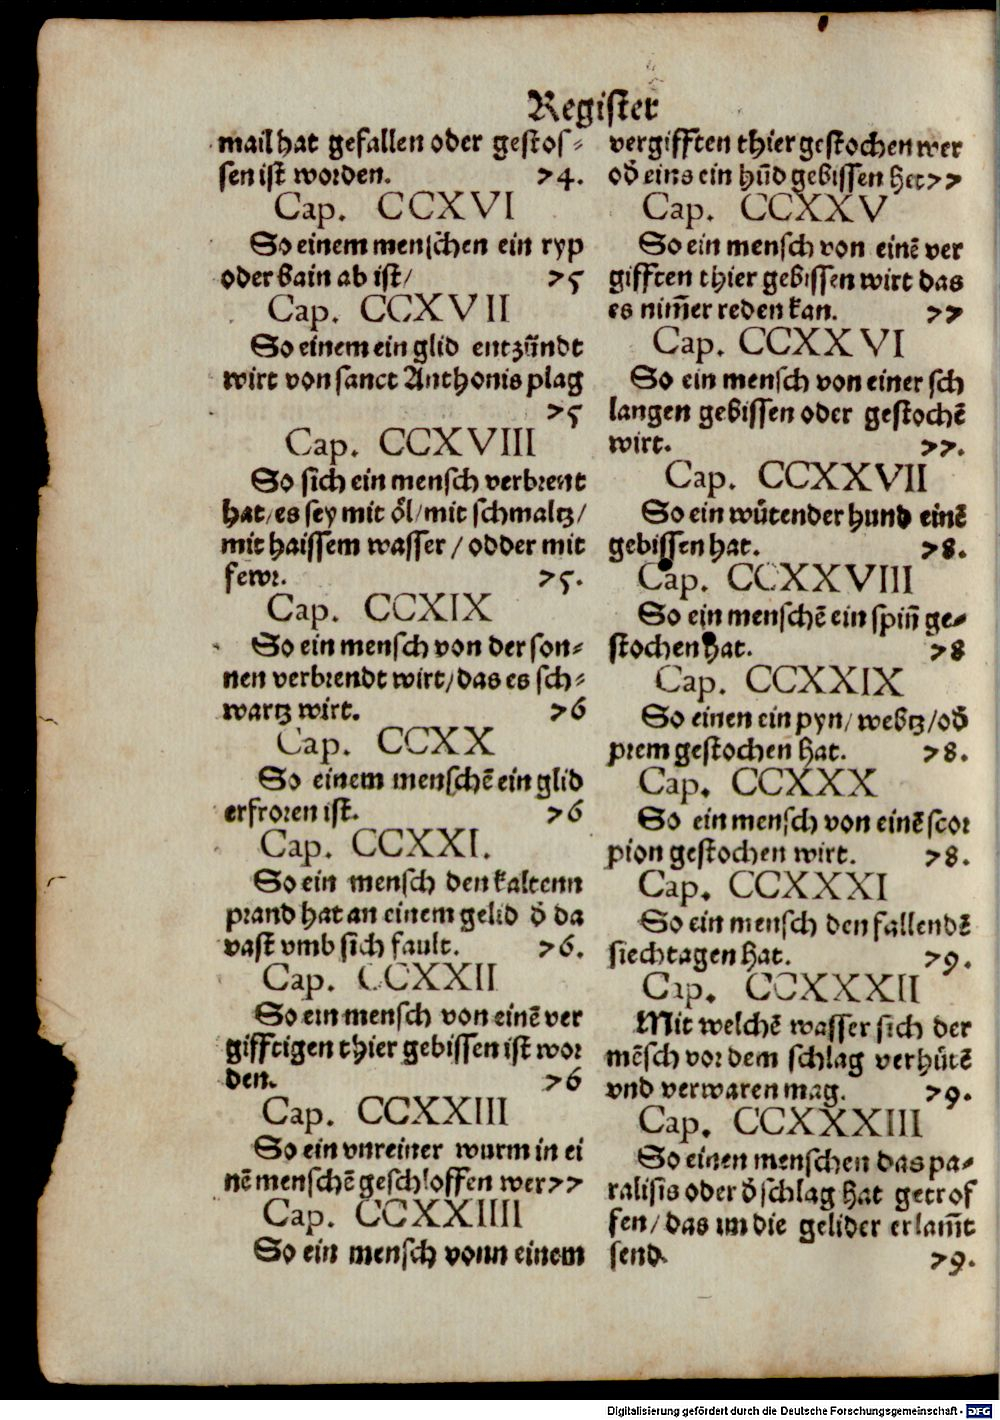 Register
mail hat gefallen oder gestos-
sen ist worden. 74.
Cap. CCXVI
So einem menschen ein ryp
oder bain ab ist/ 75
Cap. CCXVII
So einem ein glid entzündt
wirt von sanct Anthonis plag
75
Cap. CCXVIII
So sich ein mensch verbrent
hat/es sey mit öl/mit schmaltz/
mit haissem wasser / odder mit
fewr. 75.
Cap. CCXIX
So ein mensch von der son-
nen verbrendt wirt/das es sch-
wartz wirt. 76
Cap. CCXX
So einem menschē ein glid
erfroren ist. 76
Cap. CCXXI.
So ein mensch den kaltenn
prand hat an einem gelid d̄ da
vast vmb sich fault. 76.
Cap. CCXXII
So ein mensch von einē ver
gifftigen thier gebissen ist wor
den. 76
Cap. CCXXIII
So ein vnreiner wurm in ei
nē menschē geschloffen wer 77
Cap. CCXXIIII
So ein mensch vonn einem
vergifften thier gestochen wer
od̄ eins ein hūd gebissen het 77
Cap. CCXXV
So ein mensch von einē ver
gifften thier gebissen wirt das
es nim̄er reden kan. 77
Cap. CCXXVI
So ein mensch von einer sch
langen gebissen oder gestochē
wirt. 77.
Cap. CCXXVII
So ein wütender hund einē
gebissen hat. 78.
Cap. CCXXVIII
So ein menschē ein spin̄ ge-
stochen hat. 78
Cap. CCXXIX
So einen ein pyn/ webtz/od̄
prem gestochen hat. 78.
Cap. CCXXX
So ein mensch von einē scor
pion gestochen wirt. 78.
Cap. CCXXXI
So ein mensch den fallendē
siechtagen hat. 79.
Cap. CCXXXII
Mit welchē wasser sich der
mēsch vor dem schlag verhütē
vnd verwaren mag. 79.
Cap. CCXXXIII
So einen menschen das pa-
ralisis oder d̄ schlag hat getrof
fen/das im die gelider erlam̄t
send. 79.
Digitalisierung gefördert durch die Deutsche Forschungsgemeinschaft - DFG